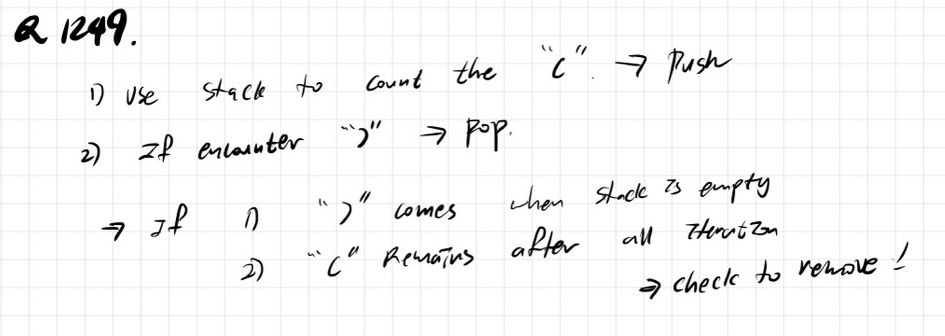 Q 1249.
1) Use stack to count the "(". → Push
2) If encounter ")" → Pop.
→ If 1) ")" comes when stack is empty
2) "(" Remains after all Iteration
→ check to remove!